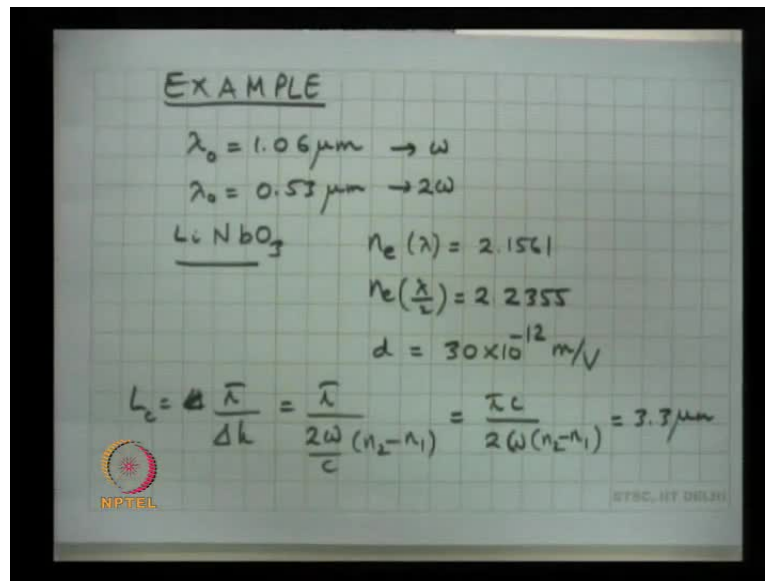 EXAMPLE
λ₀ = 1.06 μm → ω
λ₀ = 0.53 μm → 2ω
LiNbO₃ nₑ(λ) = 2.1561
nₑ(λ/2) = 2.2355
d = 30×10⁻¹² m/V
L_c = π/Δk = π/((2ω/c)(n₂-n₁)) = πc/(2ω(n₂-n₁)) = 3.3 μm
NPTEL
ETSC, IIT DELHI